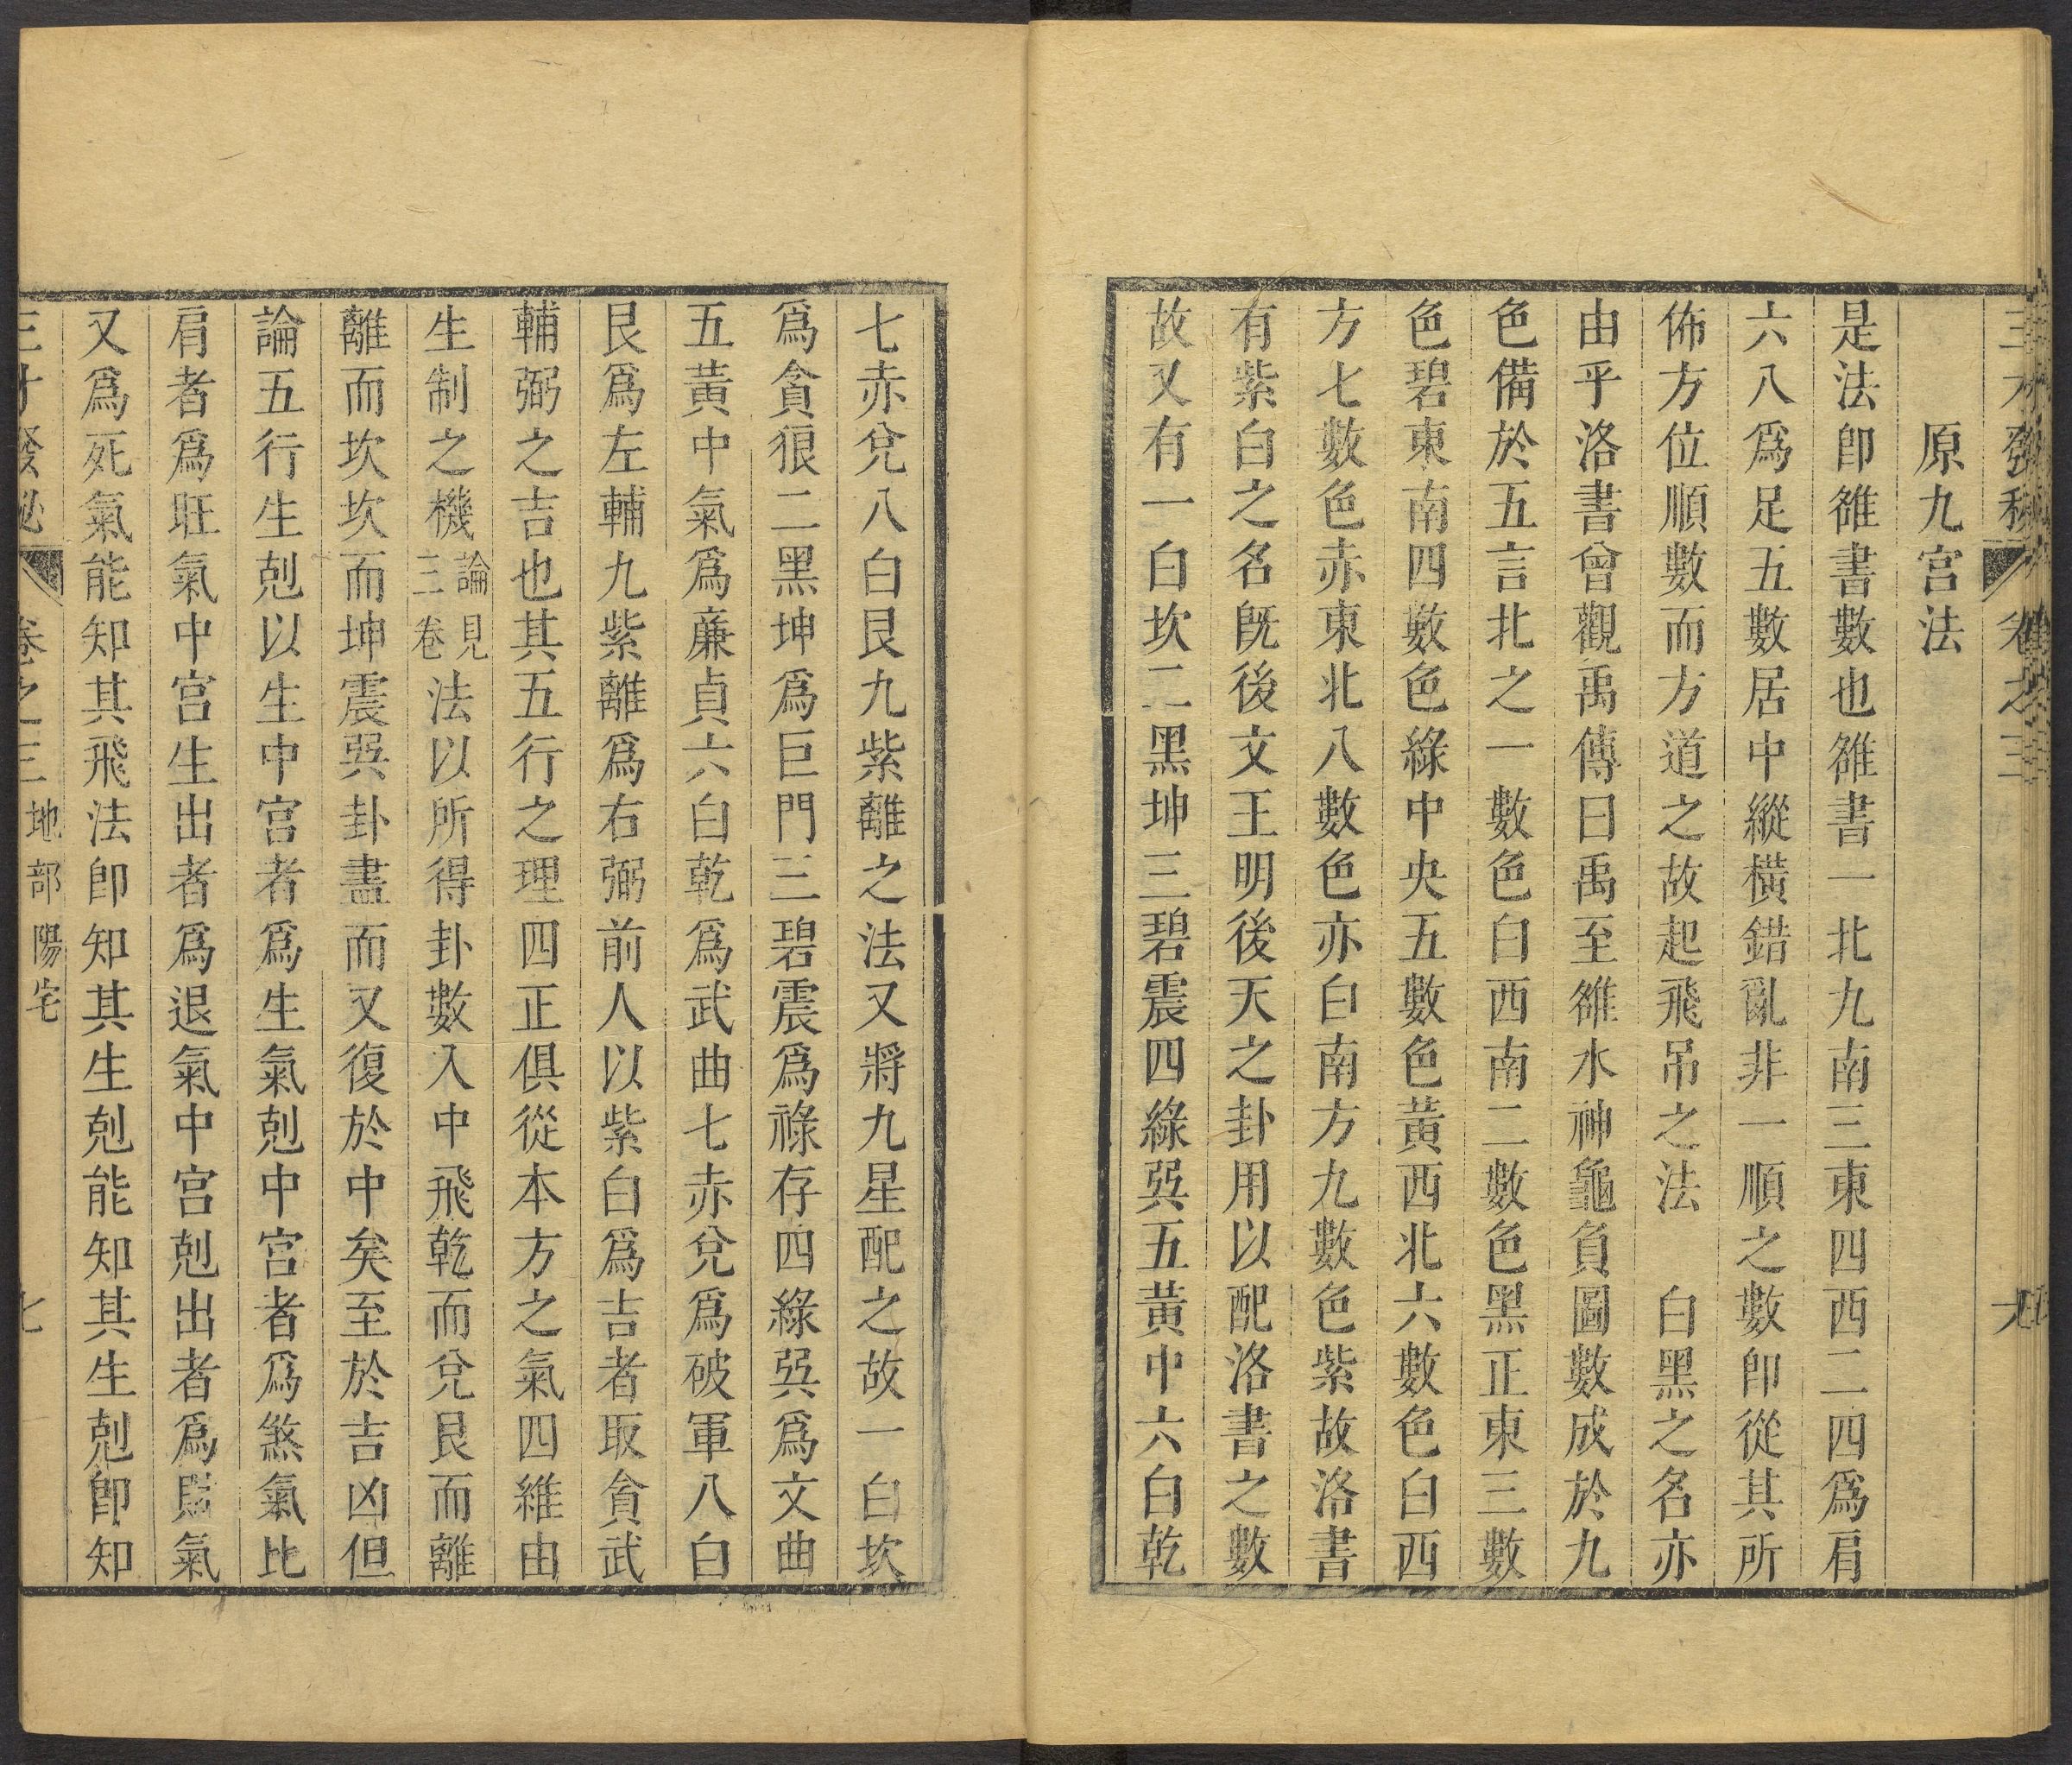 三才發秘 卷之三
原九宫法
是法卽雒書數也雒書一北九南三東四西二四爲肩
六八爲足五數居中縱橫錯亂非一順之數卽從其所
佈方位順數而方道之故起飛吊之法 白黑之名亦
由乎洛書曾觀禹傳曰禹至雒水神龜負圖數成於九
色備於五言北之一數色白西南二數色黑正東三數
色碧東南四數色綠中央五數色黃西北六數色白西
方七數色赤東北八數色亦白南方九數色紫故洛書
有紫白之名旣後文王明後天之卦用以配洛書之數
故又有一白坎二黑坤三碧震四綠巽五黃中六白乾
七赤兌八白艮九紫離之法又將九星配之故一白坎
爲貪狼二黑坤爲巨門三碧震爲祿存四綠巽爲文曲
五黃中氣爲廉貞六白乾爲武曲七赤兌爲破軍八白
艮爲左輔九紫離爲右弼前人以紫白爲吉者取貪武
輔弼之吉也其五行之理四正俱從本方之氣四維由
生制之機論見三卷法以所得卦數入中飛乾而兌艮而離
離而坎坎而坤震巽卦盡而又復於中矣至於吉凶但
論五行生剋以生中宮者爲生氣剋中宮者爲煞氣比
肩者爲旺氣中宮生出者爲退氣中宮剋出者爲氣
又爲死氣能知其飛法卽知其生剋能知其生剋卽知
三才發秘 卷之三 地部 陽宅 七